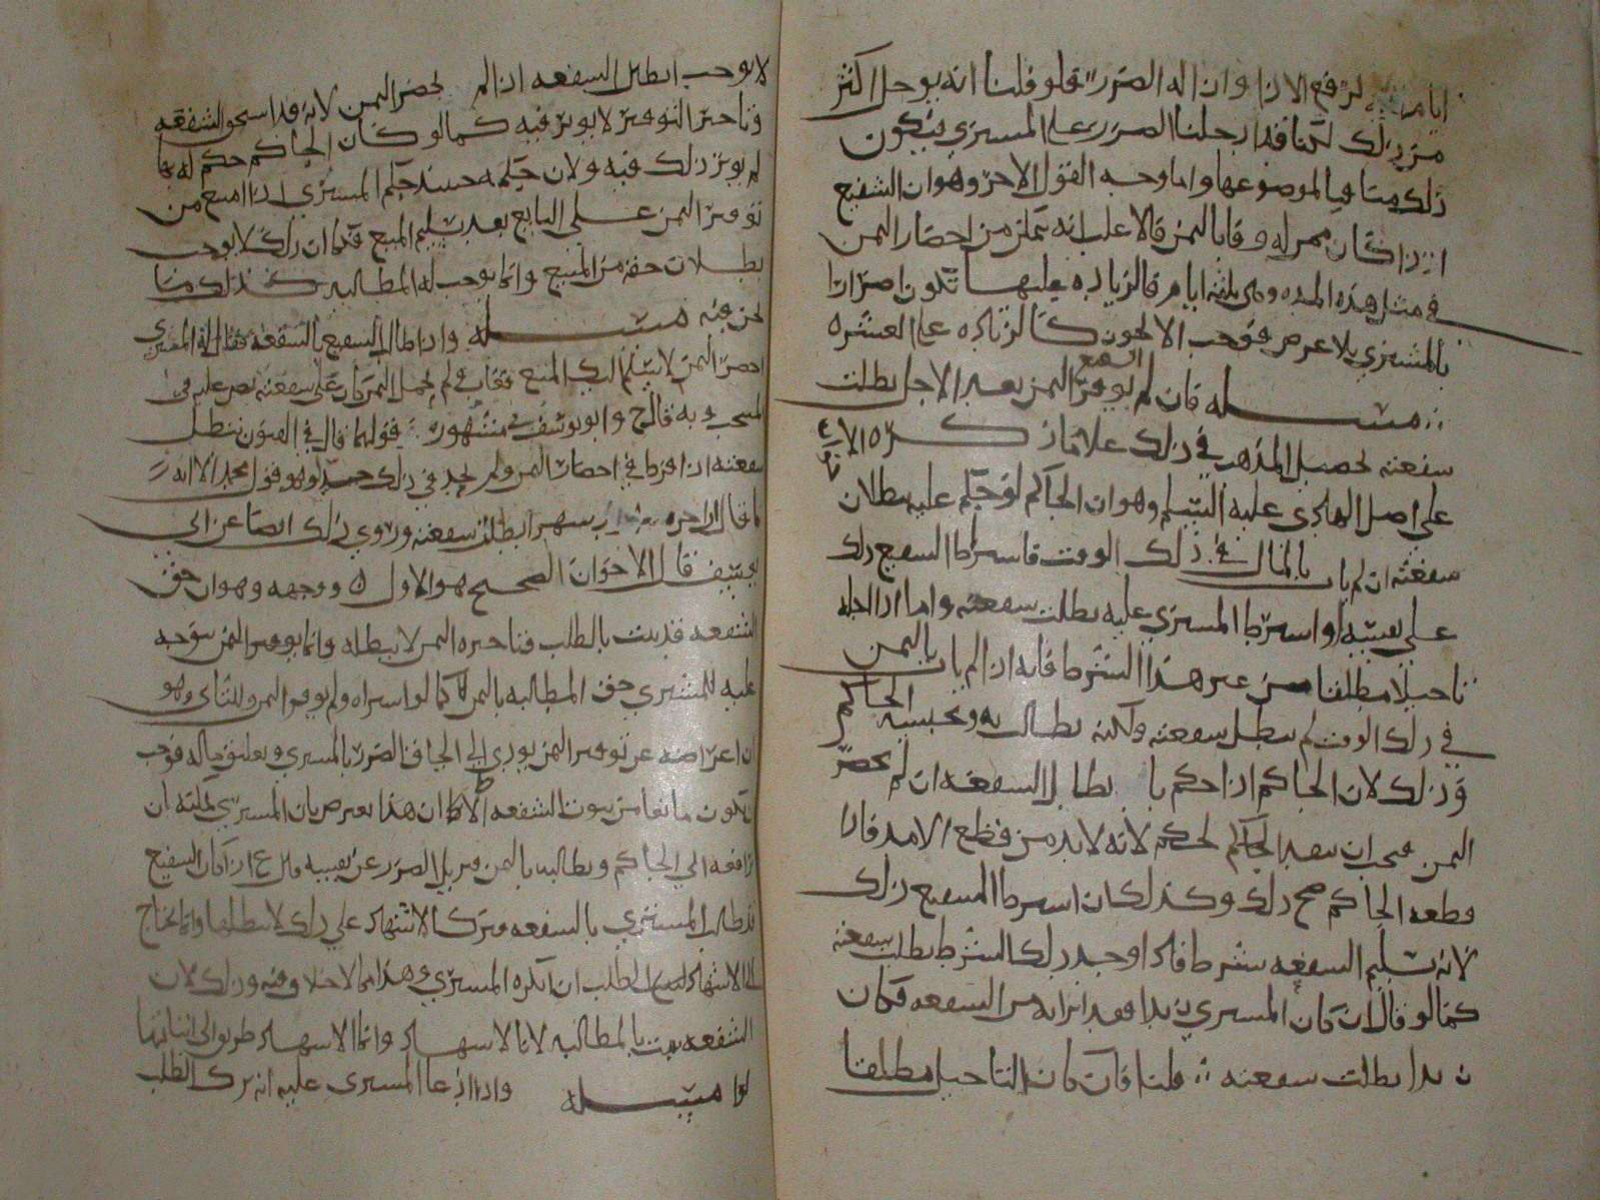 لرفع الاذا وان اله الضرر فلو قلنا انه يوجل اكثر
من ذلك لكنا قد ادخلنا الضرر على المسترى فيكون
ذلك منافيا لموضوعها واما وجه القول الاخر وهو ان الشفيع
اذا كان ممهله وقا بالثمن فالاغلب انه يتمكن من احضار الثمن
في مثل هذه المده وهى ثلثه ايام فالزياده عليها تكون اضرارا
بالمشترى بلا عوض فوجب الا يجوز كالزياده على العشره
مسله فان لم يوفر الشفيع الثمن بعد الاجل بطلت
سفعته تحصيل المذهب في ذلك على ما ذكره الا
على اصل الهادى عليه السلم وهو ان الحاكم لو حكم عليه ببطلان
سفعته ان لم يات بالمال في ذلك الوقت فاسترط السفيع ذلك
على نفسه او استرط المسترى عليه بطلت سفعته واما اذا اجله
تاجيلا مطلقا من غير هذا الشرط فانه اذا لم يات بالثمن
في ذلك الوقت لم تبطل سفعته ولكنه يطالب به ويحبسه الحاكم
وذلك لان الحاكم اذا حكم با بطال السفعه ان لم يحضر
الثمن فيجب ان ينفذ الحكم لانه لا بد من قطع الامد فاذا
قطعه الحاكم صح ذلك وكذلك ان اسرط السفيع ذلك
لانه تسليم السفعه بشرط فاذا وجد ذلك الشرط بطلت سفعته
كما لو قال ان كان المسترى زيدا فقد ابرابه من السفعه فكان
زيدا بطلت سفعته قلنا فان كان التاجيل مطلقا
لا يوجب ابطال السفعه اذا لم يحضر الثمن لانه قد استحق الشفعه
وتاخير التوفير لا يوثر فيه كما لو كان الحاكم حكم له بها
لم يوثر ذلك فيه ولان حكمه حينئذ حكم المسترى اذا امتنع من
توفير الثمن على البايع بعد تسليم المبيع فكما ان ذلك لا يوجب
بطلان حقه من المبيع وانما يوجب له المطالبه كذلك ما
نحن فيه مسله واذا طالب السفيع بالشفعه فقال له المشترى
احضر الثمن لاسلم اليك المبيع فغاب ولم يحمل الثمن كان على سفعته نص عليه في
المنتخب وبه قال ح وابو يوسف في مشهور قولهما قال في الفنون تبطل
سفعته اذا فرط في احضار الثمن ولم يحد في ذلك حدا وهو قول محمد الا انه
قال اذا اخره شهرا بطلت سفعته وروي ذلك ايضا عن ابى
يوسف قال الاخوان الصحيح هو الاول ووجهه وهو ان حق
الشفعه قد ثبت بالطلب فتاخيره الثمن لا يبطله وانما يوفر الثمن يتوجه
عليه للمشترى حق المطالبه بالثمن كما لو اسراه ولم يوفر الثمن وللثانى وهو
ان اعراضه عن توفير الثمن يودى الى الحاق الضرر بالمسترى وتعليق ماله فوجب
ان يكون مانعا من ثبوت الشفعه الا ان هذا يعترض بان المسترى يمكنه ان
يرافعه الى الحاكم ويطالبه بالثمن فيزيل الضرر عن نفسه اذا كان السفيع
قد طالب المسترى بالسفعه وترك الاشهاد على ذلك لا يبطلها وانما يحتاج
الى الاشهاد الطلب ان انكره المسترى وهذا مما لا خلاف فيه وذلك لان
الشفعه ثبتت بالمطالبه لا بالاسهاد وانما الاسهاد طريق الى اثباتها
مسله واذا ادعا المسترى عليه انه ترك الطلب